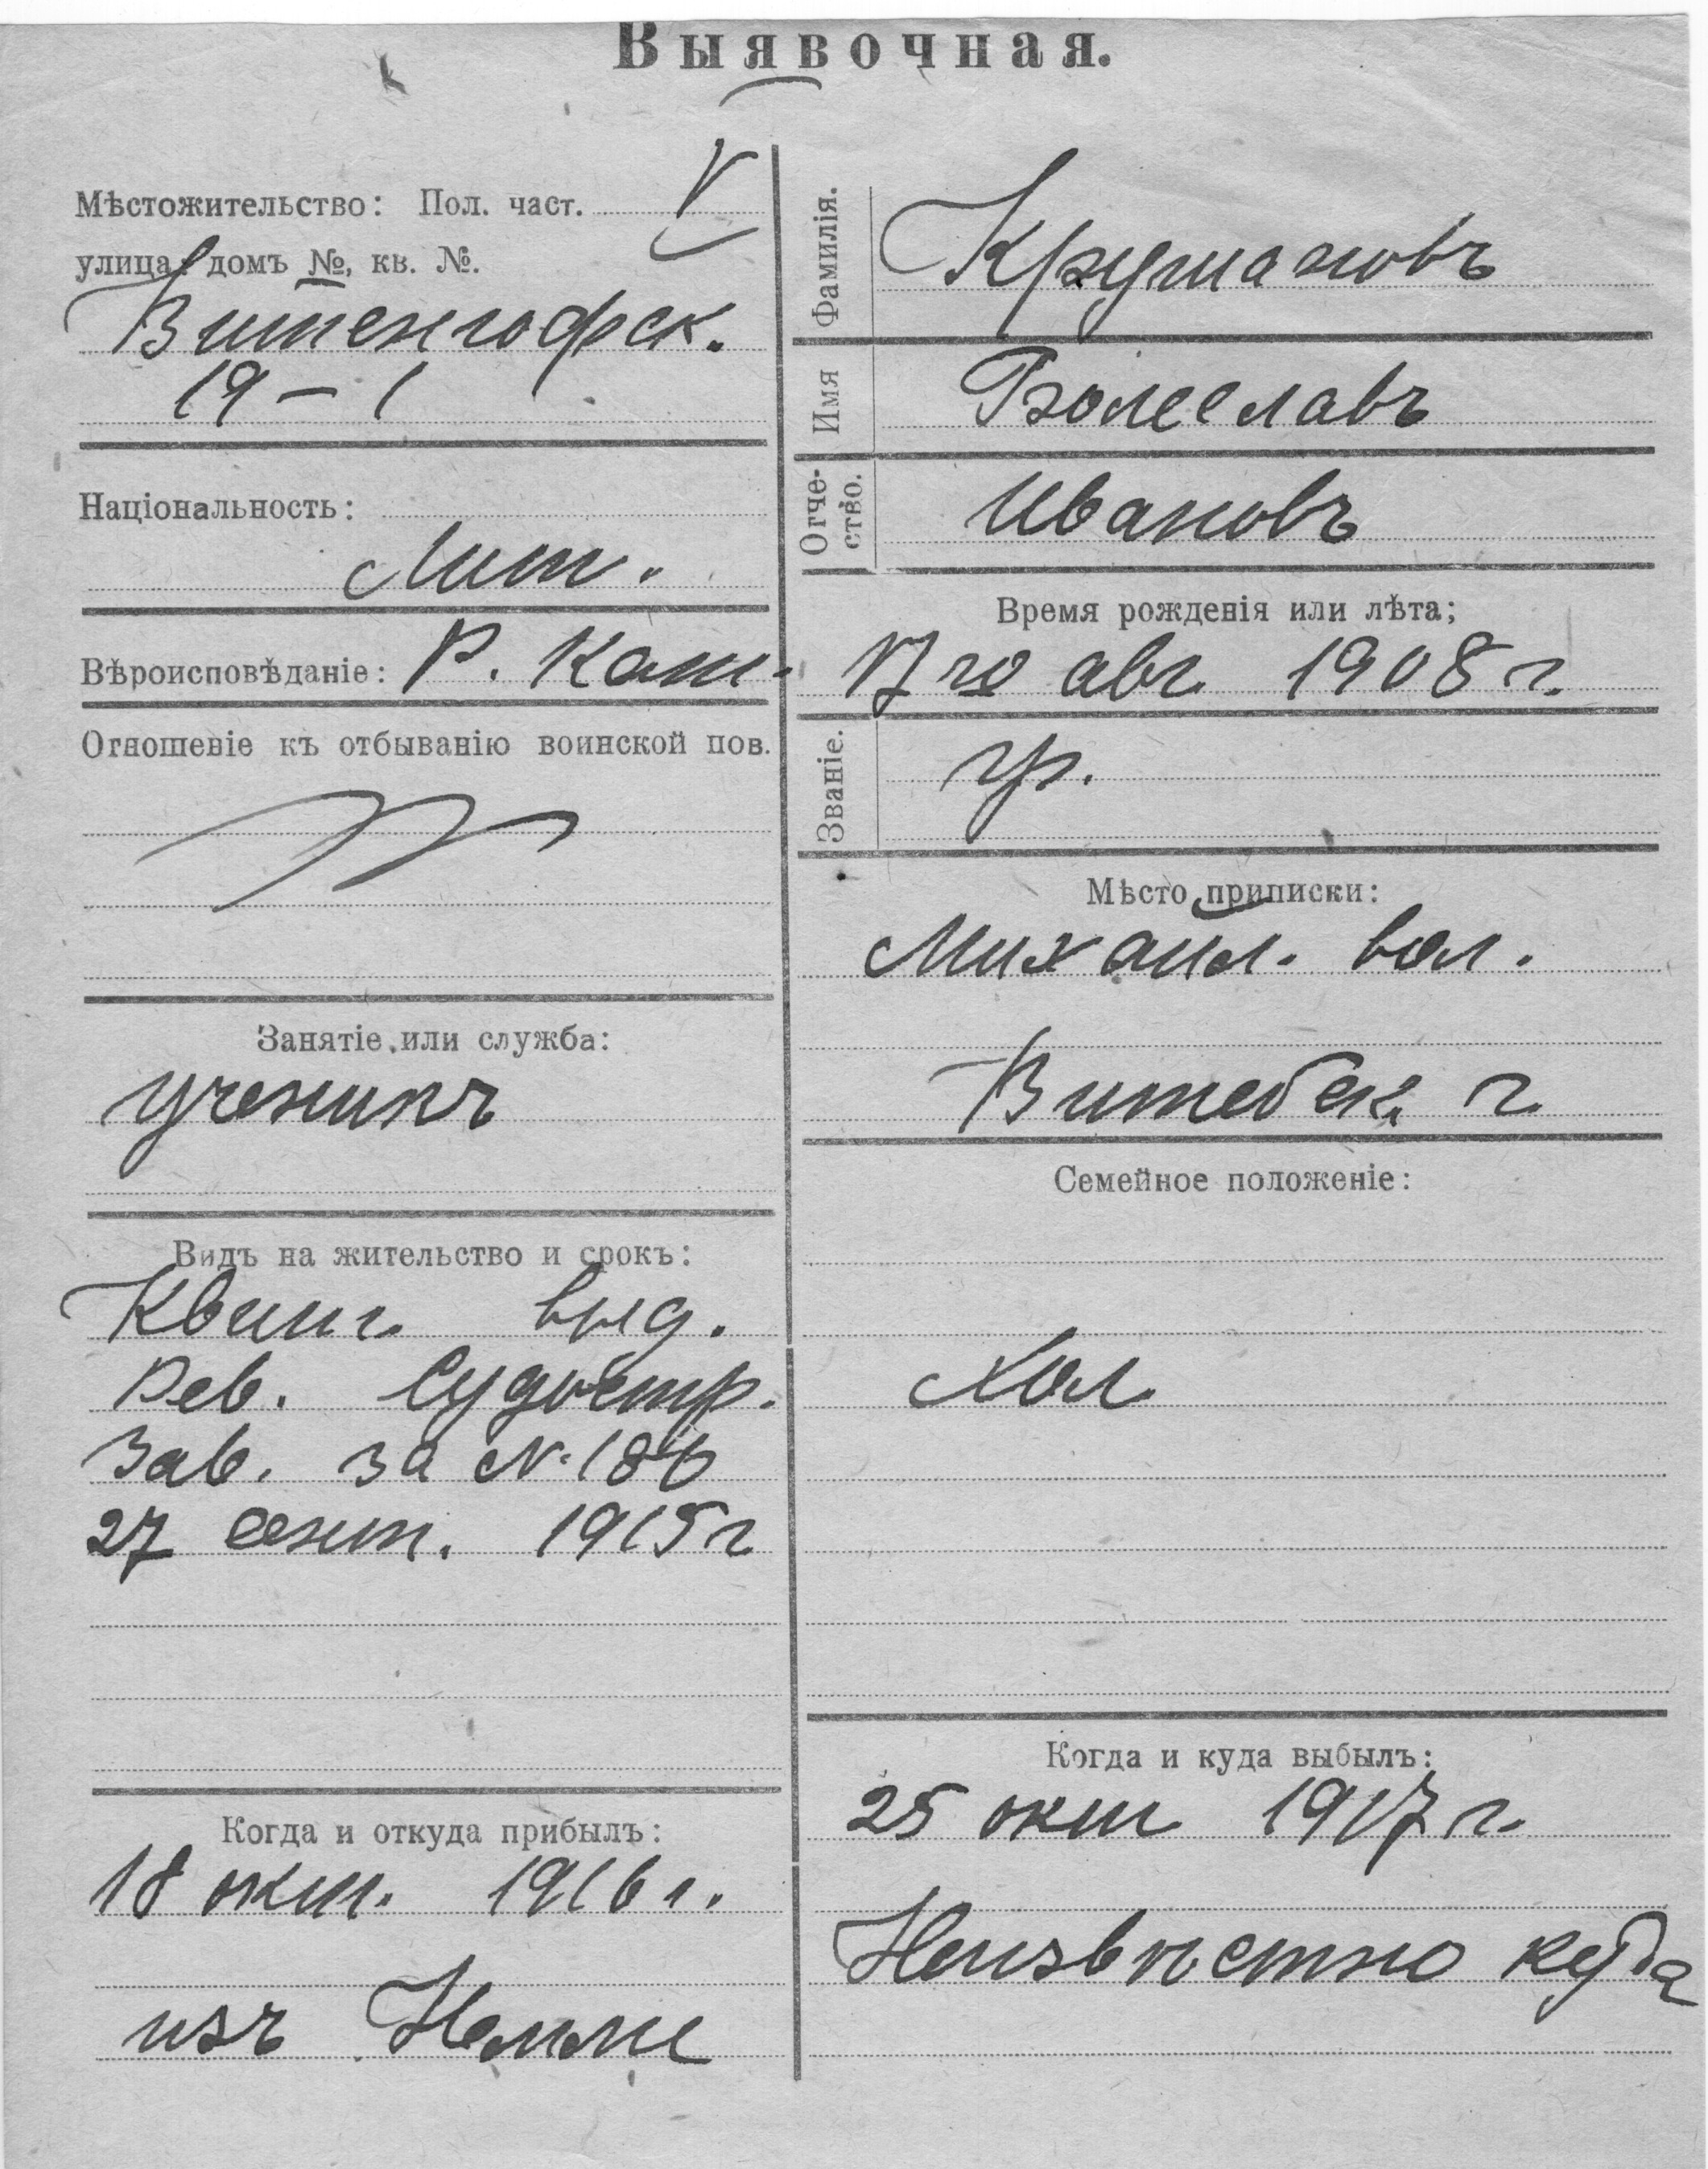 Выявочная.
Мѣстожительство: Пол. част. V
улица: домъ №, кв. №.
Витенгофск.
19 – 1
Національность:
Лит.
Вѣроисповѣданіе: Р. Кат.
Отношеніе къ отбыванію воинской пов.
Занятіе или служба:
ученикъ
Видъ на жительство и срокъ:
Квит. выд.
Рев. Судостр.
Зав. за №
27 сент. 1915 г
Когда и откуда прибылъ:
18 окт. 1916 г.
изъ Немме
Фамилія.
Имя
Болеславъ
Отчество.
Ивановъ
Время рожденія или лѣта;
17го авг. 1908 г.
Званіе.
гр.
Мѣсто приписки:
Михайл. вол.
Витебск. г.
Семейное положеніе:
Хол
Когда и куда выбылъ:
25 окт 1917 г.
Неизвѣстно куда